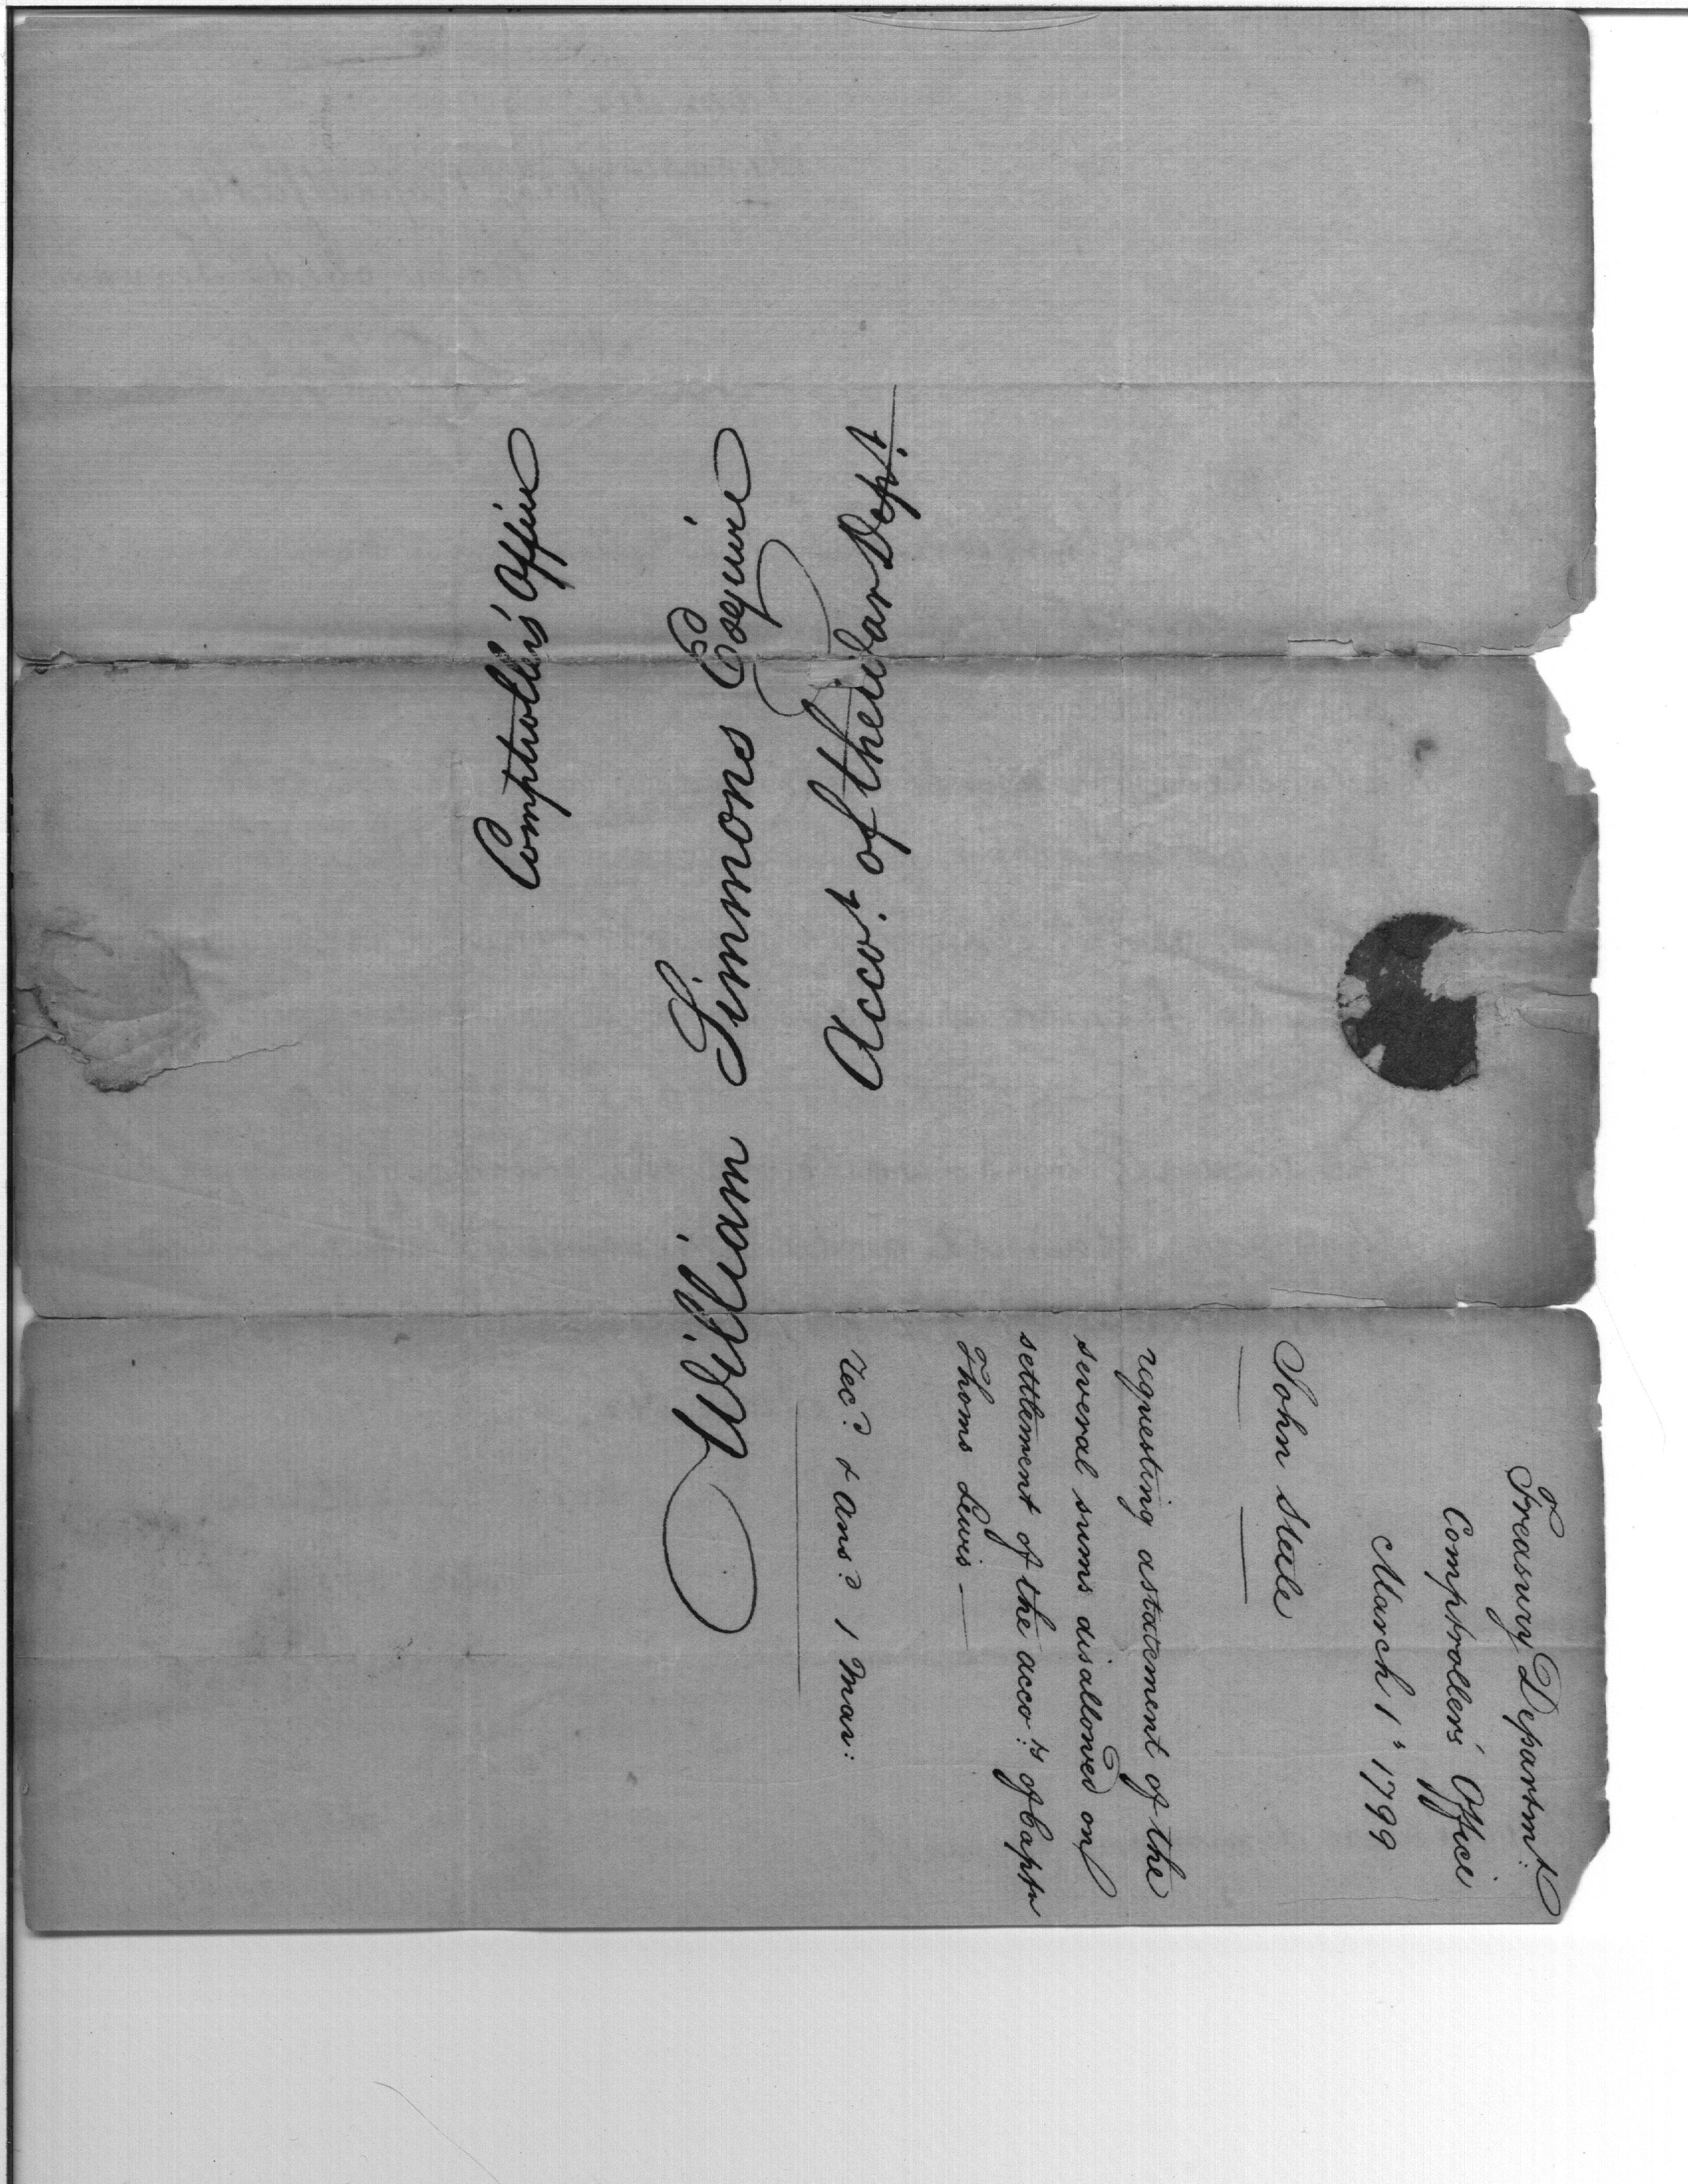 Comptroller's Office
William Simmons Esquire
Acco.t of the War Dep.t
Treasury Departm.t
Comptroller's Office
March 1.st 1799
John Steele
requesting a statement of the
several sums disallowed on
settlement of the acco.ts of Captn
Thoms Lewis —
Rec.d & Ans.d 1 Mar: